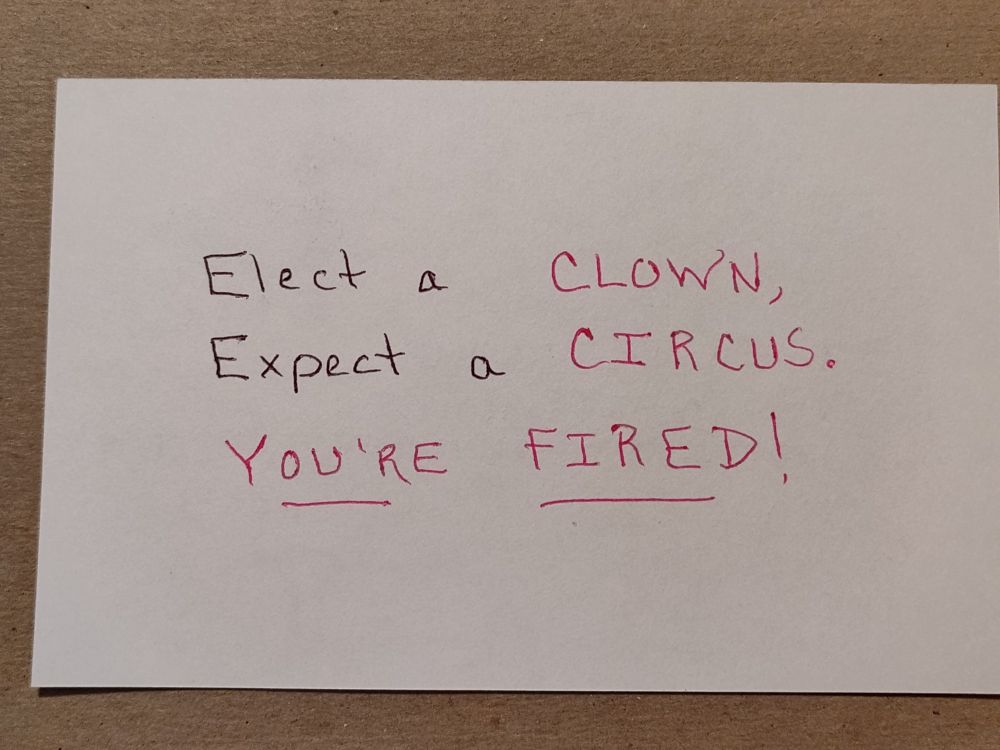 Elect a CLOWN,
Expect a CIRCUS.
YOU'RE FIRED!